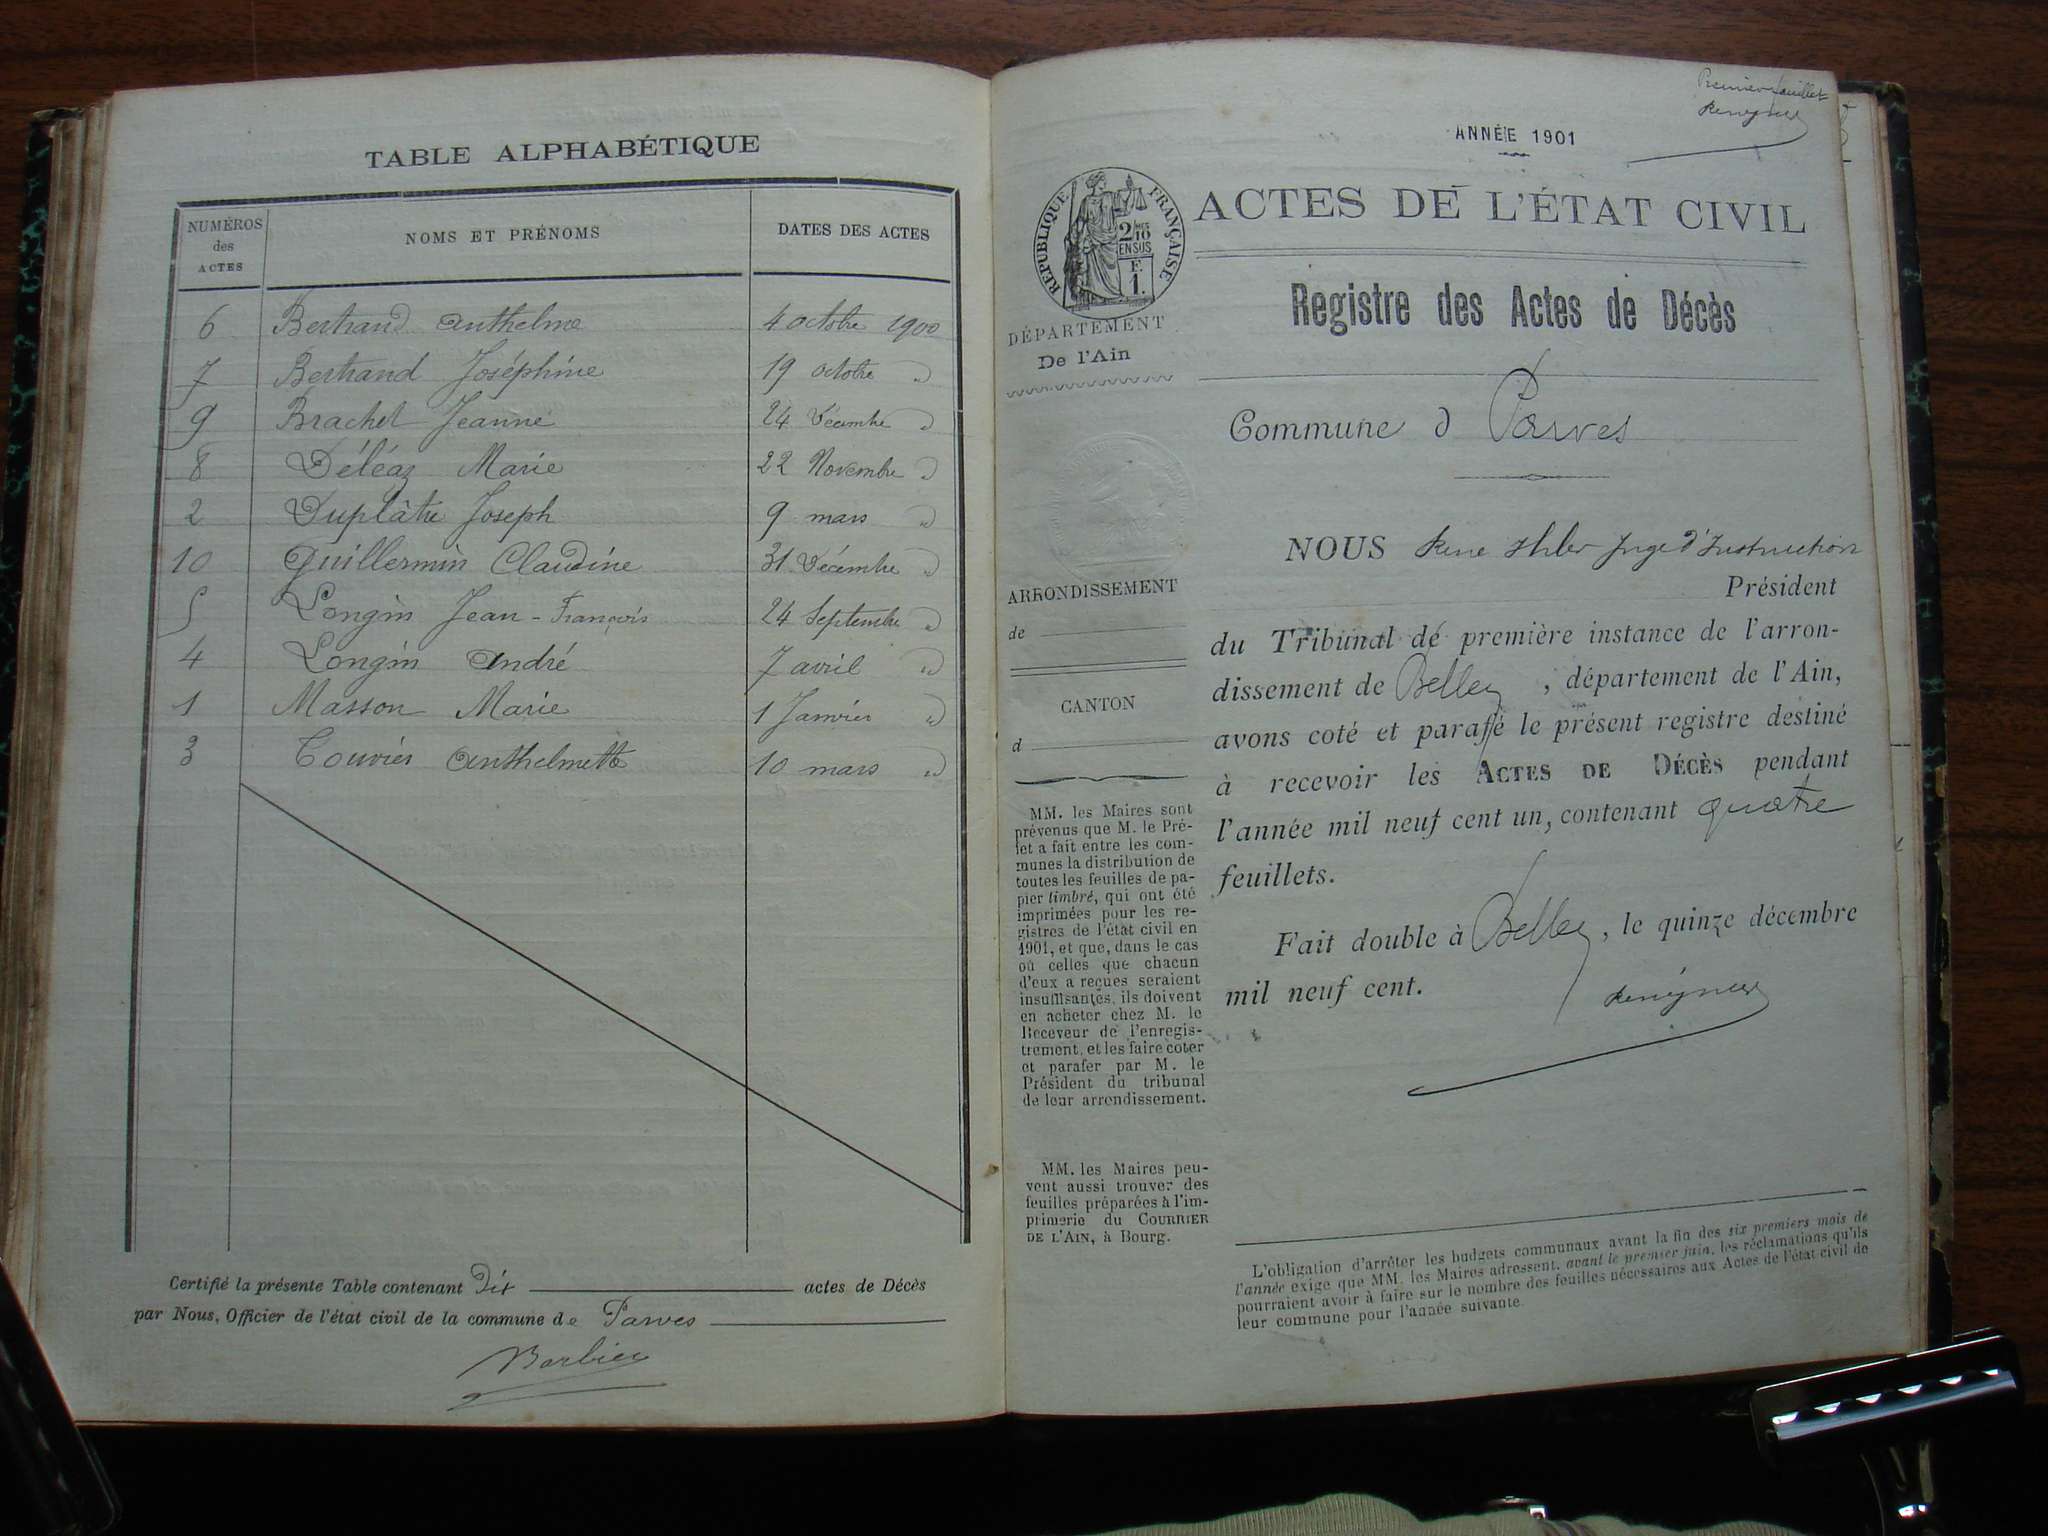 TABLE ALPHABÉTIQUE
NUMÉROS des ACTES NOMS ET PRÉNOMS DATES DES ACTES
6 Bertrand Anthelme 4 octobre 1900
7 Bertrand Joséphine 19 octobre "
9 Brachet Jeanne 24 Décembre "
8 Déléaz Marie 22 Novembre "
2 Duplâtre Joseph 9 mars "
10 Guillermin Claudine 31 Décembre "
5 Longin Jean-François 24 Septembre "
4 Longin André 7 avril "
1 Masson Marie 1 Janvier "
3 Touvier Anthelmette 10 mars "
Certifié la présente Table contenant Dix actes de Décès
par Nous, Officier de l'état civil de la commune de Parves
Barbier
Premier feuillet
ANNÉE 1901
RÉPUBLIQUE FRANÇAISE
2/10 EN SUS
F. 1.
ACTES DE L'ÉTAT CIVIL
Registre des Actes de Décès
DÉPARTEMENT
De l'Ain
Commune d Parves
ARRONDISSEMENT
de
CANTON
d
NOUS René Juge d'Instruction
Président
du Tribunal de première instance de l'arron-
dissement de Belley, département de l'Ain,
avons coté et parafé le présent registre destiné
à recevoir les ACTES DE DÉCÈS pendant
l'année mil neuf cent un, contenant quatre
feuillets.
Fait double à Belley, le quinze décembre
mil neuf cent.
MM. les Maires sont
prévenus que M. le Pré-
fet a fait entre les com-
munes la distribution de
toutes les feuilles de pa-
pier timbré, qui ont été
imprimées pour les re-
gistres de l'état civil en
1901, et que, dans le cas
où celles que chacun
d'eux a reçues seraient
insuffisantes, ils doivent
en acheter chez M. le
Receveur de l'enregis-
trement, et les faire coter
et parafer par M. le
Président du tribunal
de leur arrondissement.
MM. les Maires peu-
vent aussi trouver des
feuilles préparées à l'im-
primerie du COURRIER
DE L'AIN, à Bourg.
L'obligation d'arrêter les budgets communaux avant la fin des six premiers mois de
l'année exige que MM. les Maires adressent, avant le premier juin, les réclamations qu'ils
pourraient avoir à faire sur le nombre des feuilles nécessaires aux Actes de l'état civil de
leur commune pour l'année suivante.